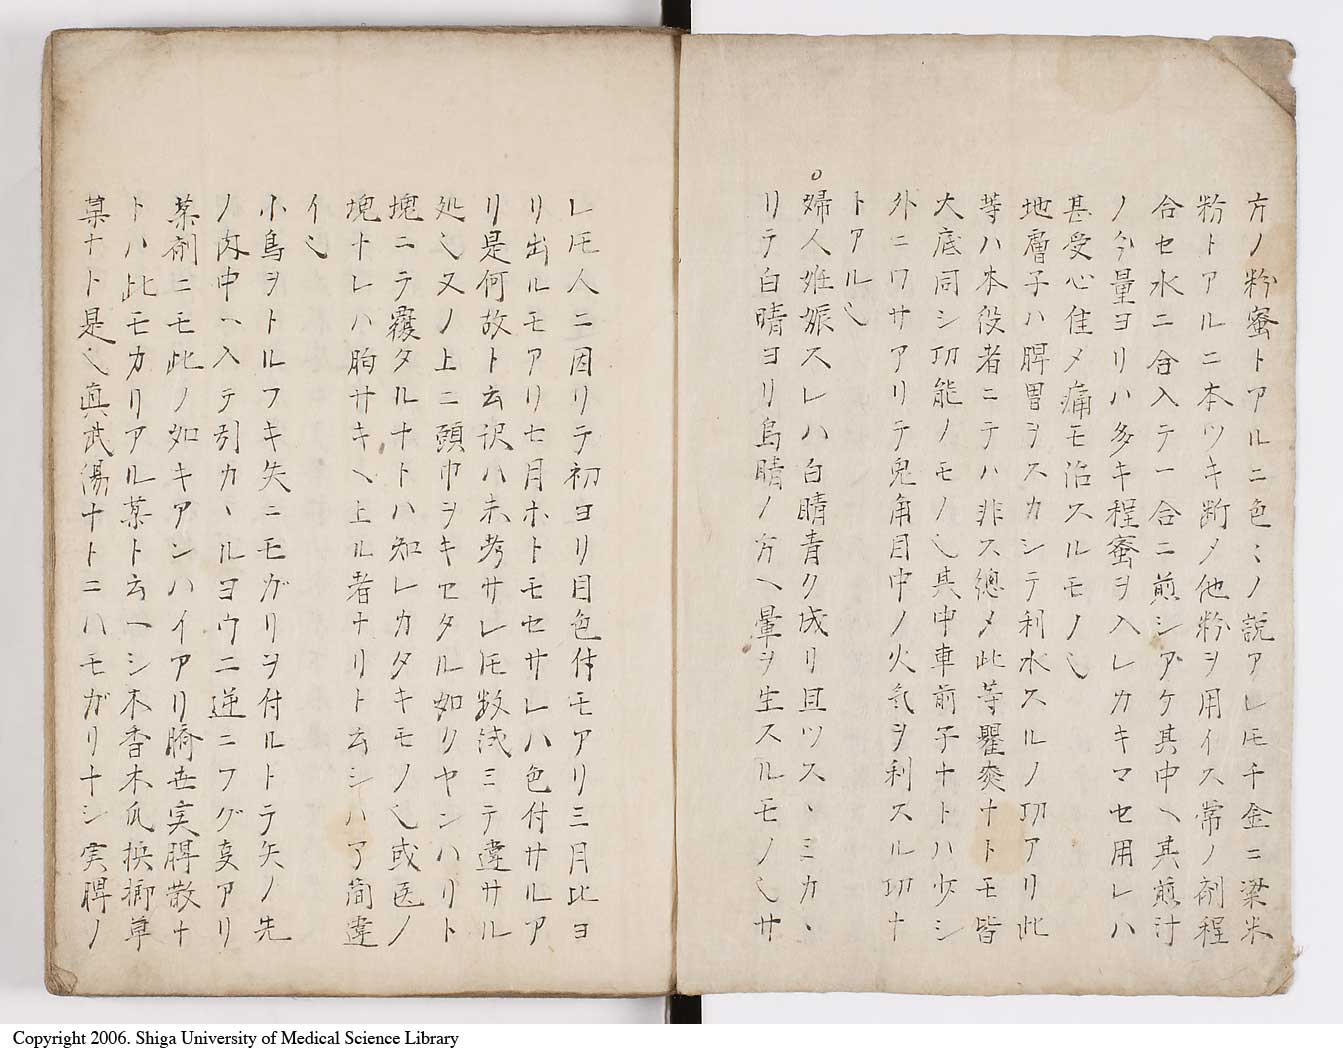 方ノ粉蜜トアルニ色〻ノ説アレ𪜈千金ニ梁米
粉トアルニ本ツキ断メ他粉ヲ用イス常ノ剤程
合セ水二合入テ一合ニ煎シアケ其中ヘ其煎汁
ノ分量ヨリハ多キ程蜜ヲ入レカキマセ用レハ
甚受心隹メ痛モ治スルモノ也
地膚子ハ脾胃ヲスカシテ利水スルノ功アリ此
等ハ本役者ニテハ非ス總メ此等瞿麥ナトモ皆
大底同シ功能ノモノ也其中車前子ナトハ少シ
外ニワサアリテ鬼角目中ノ火気ヲ利スル功ナ
トアル也
○婦人姙娠スレハ白睛青ク成リ且ツスヽミカヽ
リテ白睛ヨリ烏睛ノ方ヘ暈ヲ生スルモノ也サ
レ𪜈人ニ因リテ初ヨリ目色付モアリ三月比ヨ
リ出ルモアリ七月ホトモセサレハ色付サルア
リ是何故ト云訳ハ未考サレ𪜈数試ミテ違サル
処也又ノ上ニ頭巾ヲキセタル如クヤンハリト
塊ニテ覆タルナトハ知レカタキモノ也或医ノ
塊トレハ胸サキヘ上ル者ナリト云シハ了簡違
イ也
小鳥ヲトルフキ矢ニモガリヲ付ルトテ矢ノ先
ノ肉中ヘ入テ引カヽルヨウニ逆ニフグ叓アリ
薬剤ニモ此ノ如キアンハイアリ済世実脾散ナ
トハ此モカリアル薬ト云ヘシ木香木瓜梹榔草
菓ナト是也真武湯ナトニハモガリナシ実脾ノ